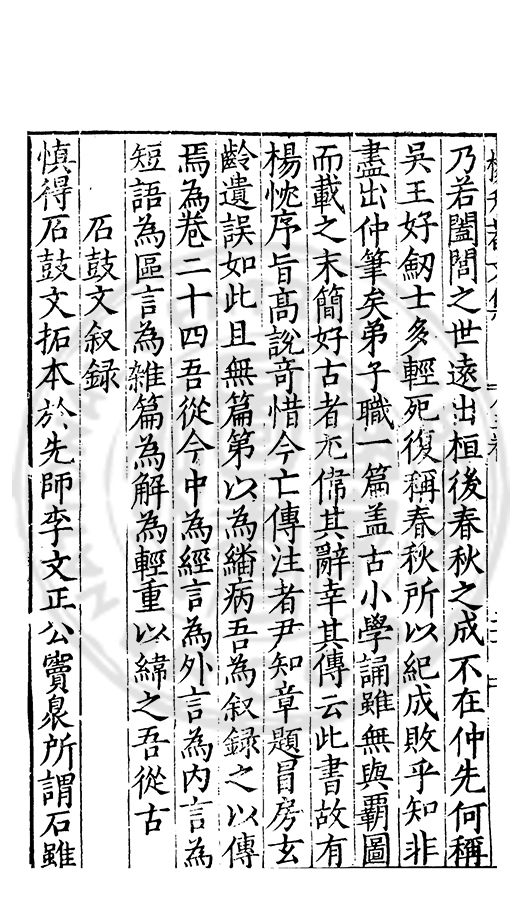 乃若闔閭之世遠出桓後春秋之成不在仲先何稱
吳王好劒士多輕死復稱春秋所以紀成敗乎知非
盡出仲筆矣弟子職一篇盖古小學誦雖無與覇圖
而載之末簡好古者尤偁其辭幸其傳云此書故有
楊忱序旨髙說竒惜今亡傳注者尹知章題冒房玄
齡遺誤如此且無篇第以為繙病吾為叙録之以傳
焉為巻二十四吾從今中為經言為外言為内言為
短語為區言為雑篇為解為輕重以緯之吾從古
石鼓文叙録
慎得石鼓文拓本於先師李文正公竇臮所謂石雖